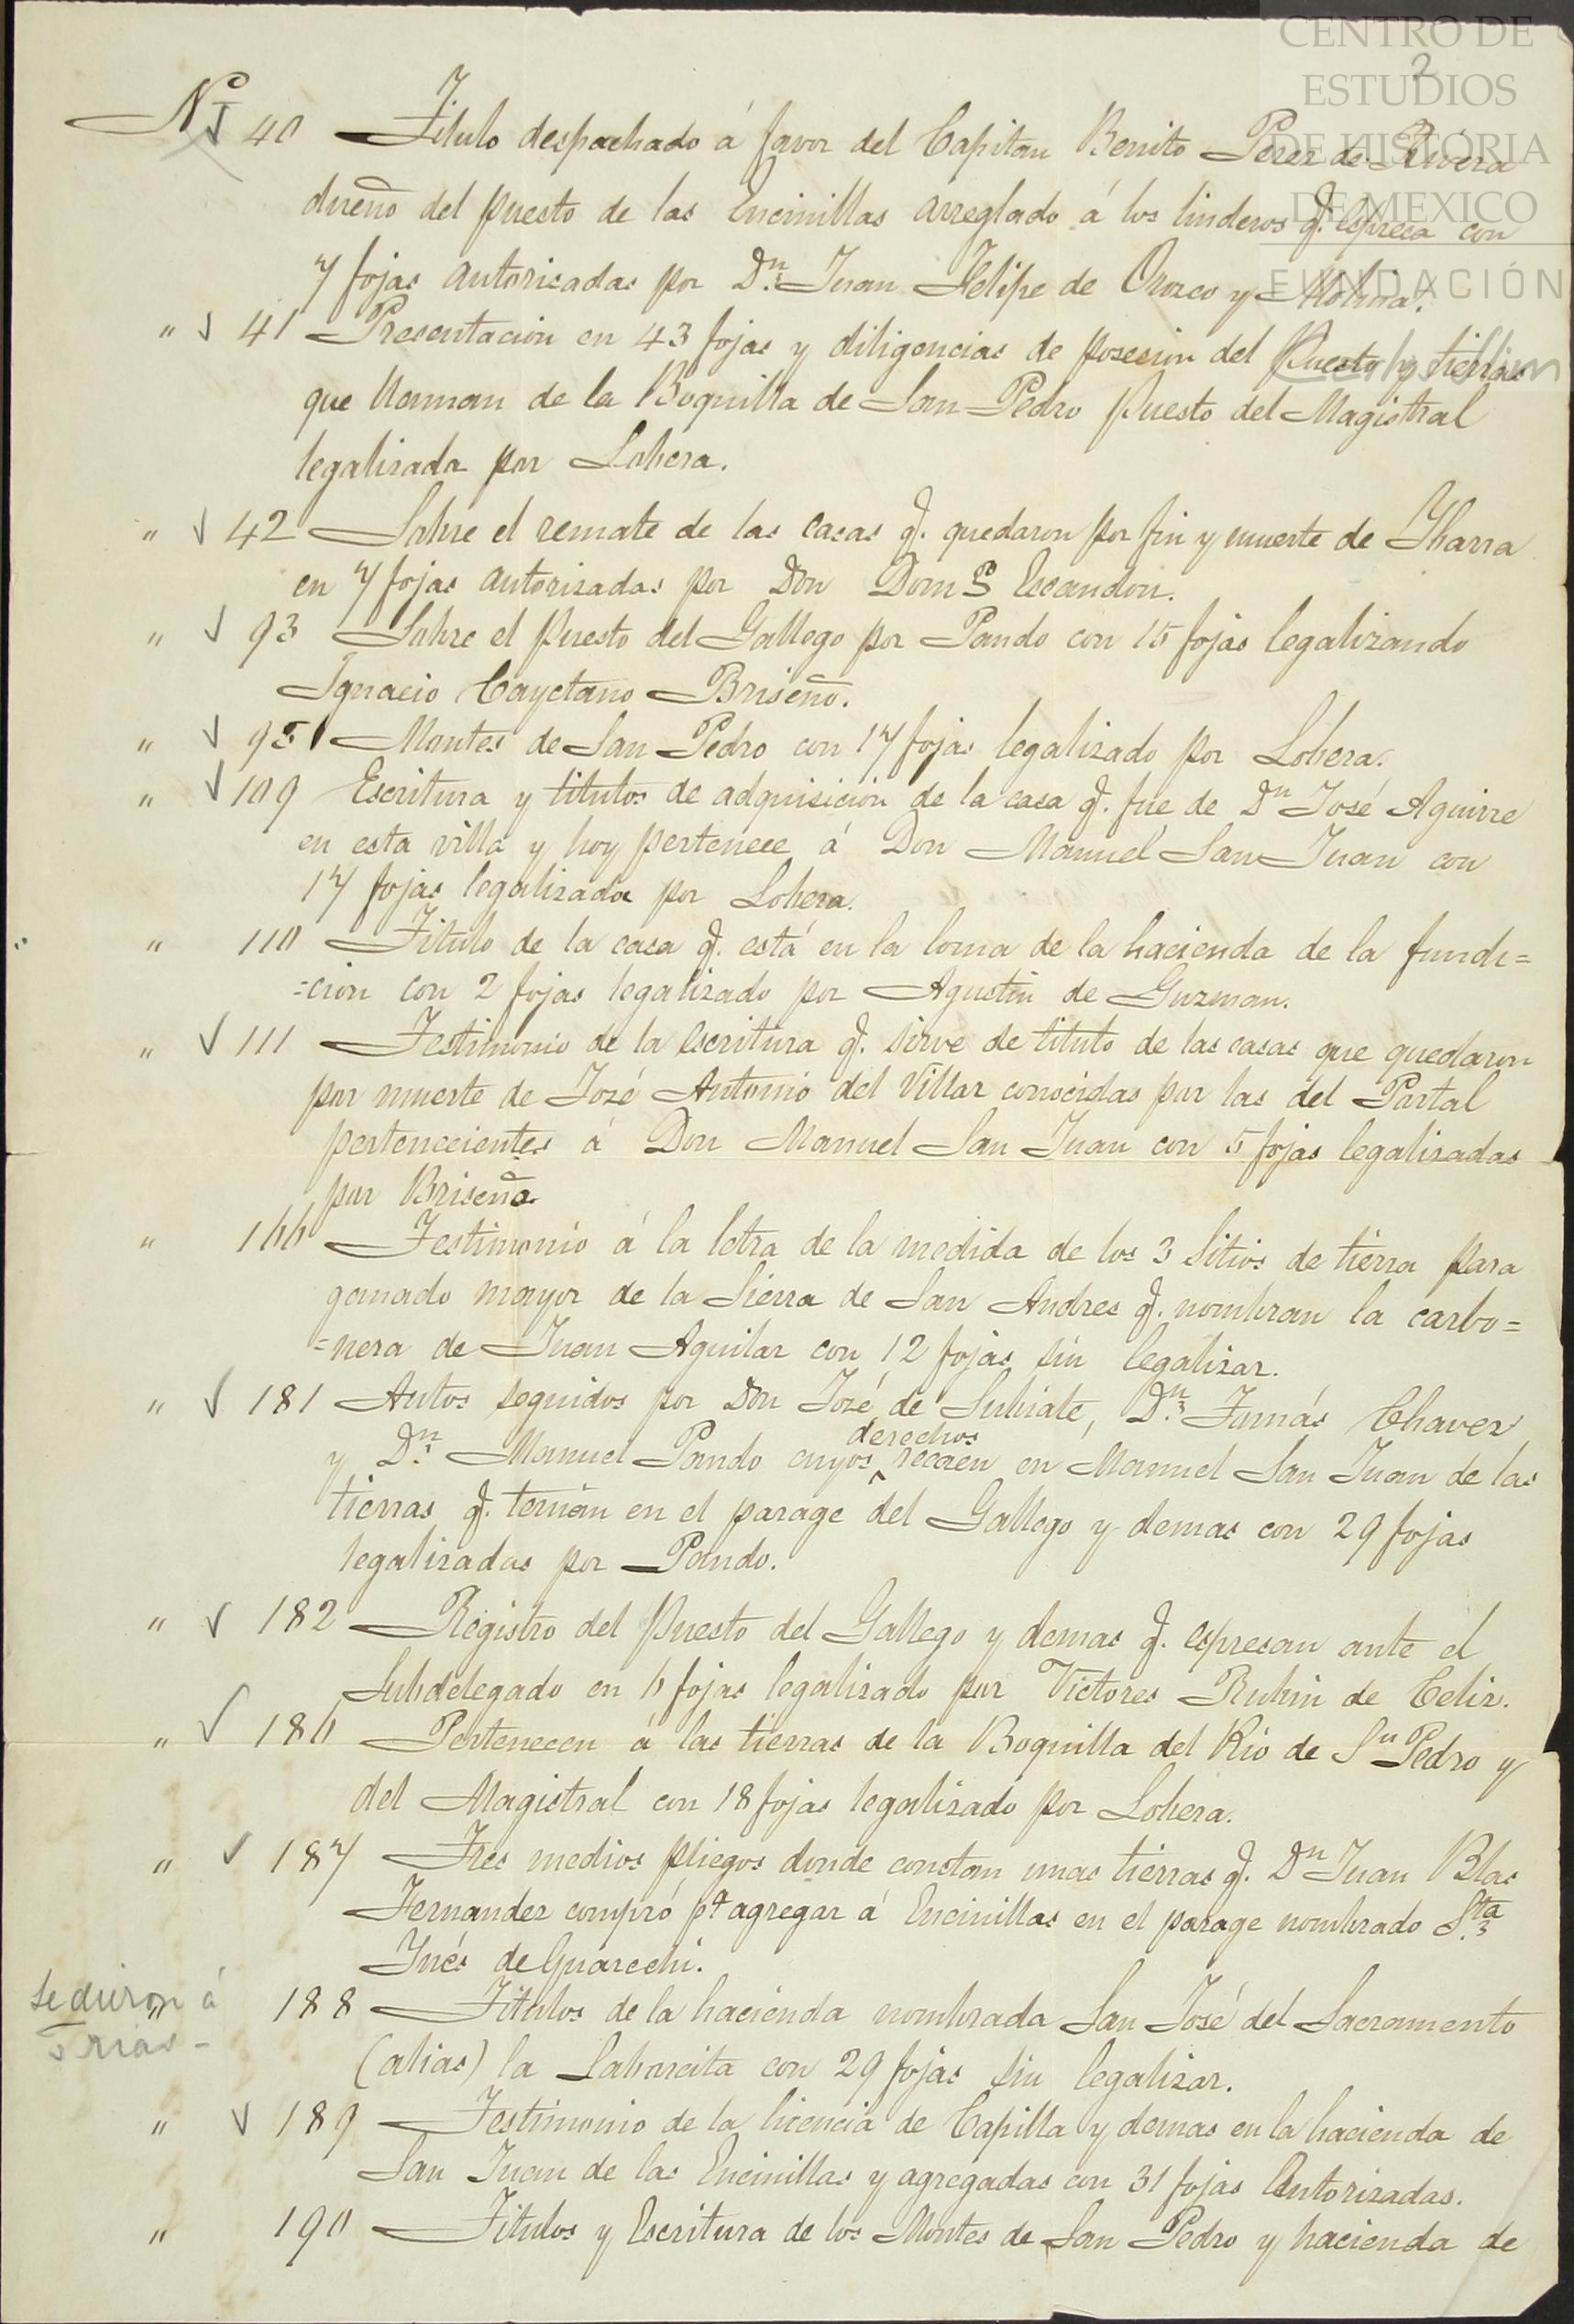 CENTRO DE
ESTUDIOS
DE HISTORIA
DE MEXICO
FUNDACIÓN
Carlos Slim
2
No √ 40 Titulo despachado á favor del Capitan Benito Perez de Rivera
dueño del puesto de las Encinillas arreglado á los linderos q. espresa con
7 fojas autorisadas por Dn. Juan Felipe de Orozco y Molina.
" √ 41 Presentacion en 43 fojas y diligencias de posesion del Puesto y tierras
que llaman de la Boquilla de San Pedro Puesto del Magistral
legalizada por Lobera.
" √ 42 Sobre el remate de las casas q. quedaron por fin y muerte de Ybarra
en 7 fojas autorizadas por Don Domo Escandon.
" √ 93 Sobre el Puesto del Gallego por Pando con 15 fojas legalizando
Ygnacio Cayetano Briseño.
" √ 95 Montes de San Pedro con 17 fojas legalizado por Lobera.
" √ 109 Escritura y titulos de adquisicion de la casa q. fue de Dn José Aguirre
en esta villa y hoy pertenece á Don Manuel San Juan con
17 fojas legalizada por Lobera.
" 110 Titulo de la casa q. está en la loma de la hacienda de la fundi=
=cion con 2 fojas legalizado por Agustin de Guzman.
" √ 111 Testimonio de la escritura q. sirve de titulo de las casas que quedaron
por muerte de José Antonio del Villar conocidas por las del Portal
pertenecientes á Don Manuel San Juan con 5 fojas legalizadas
por Briseño
" 166 Testimonio á la letra de la medida de los 3 Sitios de tierra para
ganado mayor de la Sierra de San Andres q. nombran la carbo=
=nera de Juan Aguilar con 12 fojas sin legalizar.
" √ 181 Autos seguidos por Don José de Subiate, Dn. Tomás Chavez
y Dn. Manuel Pando cuyos derechos recaen en Manuel San Juan de las
tierras q. tenian en el parage del Gallego y demas con 29 fojas
legalizadas por Pando.
" √ 182 Registro del Puesto del Gallego y demas q. espresan ante el
Subdelegado en 6 fojas legalizado por Victores Rubin de Celiz.
" √ 186 Pertenecen á las tierras de la Boquilla del Rio de Sn Pedro y
del Magistral con 18 fojas legalizado por Lobera.
" √ 187 Tres medios pliegos donde constan unas tierras q. Dn Juan Blas
Fernandez compró pa agregar á Encinillas en el parage nombrado Sta.
Inés de Guarachi.
Se dieron á
Trias -
" 188 Titulos de la hacienda nombrada San José del Sacramento
(alias) la Laborcita con 29 fojas sin legalizar.
" √ 189 Testimonio de la licencia de Capilla y demas en la hacienda de
San Juan de las Encinillas y agregadas con 31 fojas Autorizadas.
" 190 Titulos y Escritura de los Montes de San Pedro y hacienda de